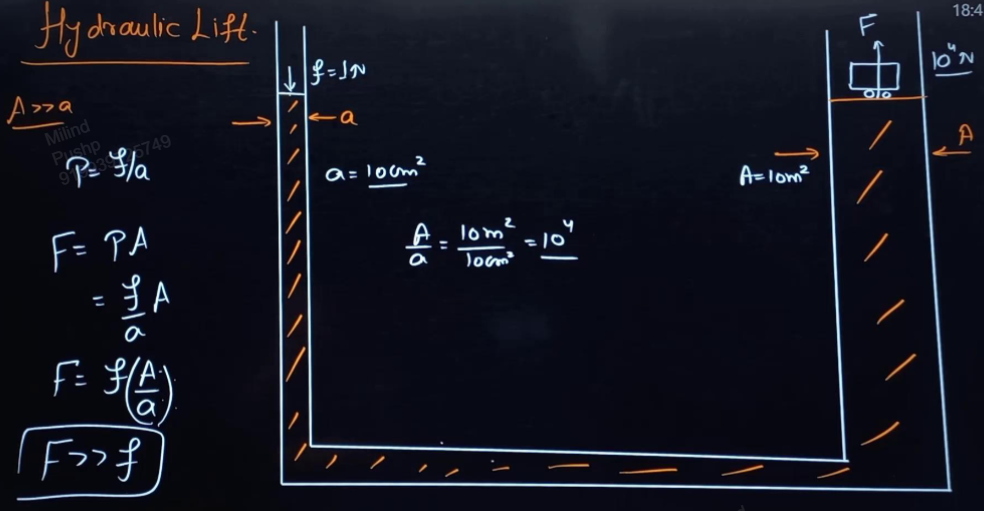 18:4
Hydraulic Lift.
A>>a
Milind
Pushp
P = f/a
F = PA
= f/a A
F = f(A/a)
F>>f
f = 1N
a
a = 10cm²
A/a = 10m²/10cm² = 10⁴
F
10⁴N
A
A = 10m²